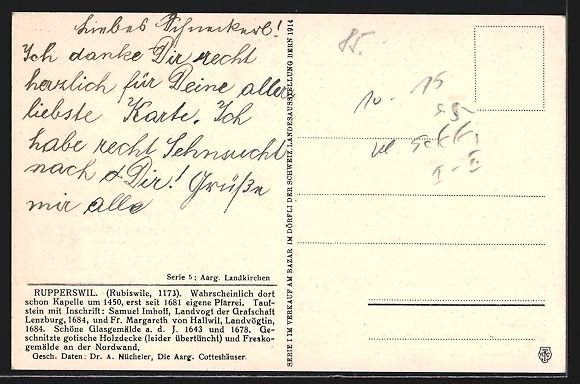 Liebes Schneckerl!
Ich danke Dir recht
herzlich für Deine aller
liebste Karte. Ich
habe recht Sehnsucht
nach Dir! Grüße
mir alle
Serie 5: Aarg. Landkirchen
RUPPERSWIL. (Rubiswile, 1173). Wahrscheinlich dort
schon Kapelle um 1450, erst seit 1681 eigene Pfarrei. Tauf-
stein mit Inschrift: Samuel Imhoff, Landvogt der Grafschaft
Lenzburg, 1684, und Fr. Margareth von Hallwil, Landvögtin,
1684. Schöne Glasgemälde a. d. J. 1643 und 1678. Ge-
schnitzte gotische Holzdecke (leider übertüncht) und Fresko-
gemälde an der Nordwand.
Gesch. Daten: Dr. A. Nücheler, Die Aarg. Gotteshäuser.
SERIE I IM VERKAUF AM BAZAR IM DÖRFLI DER SCHWEIZ. LANDESAUSSTELLUNG BERN 1914
85.-
10.- 15